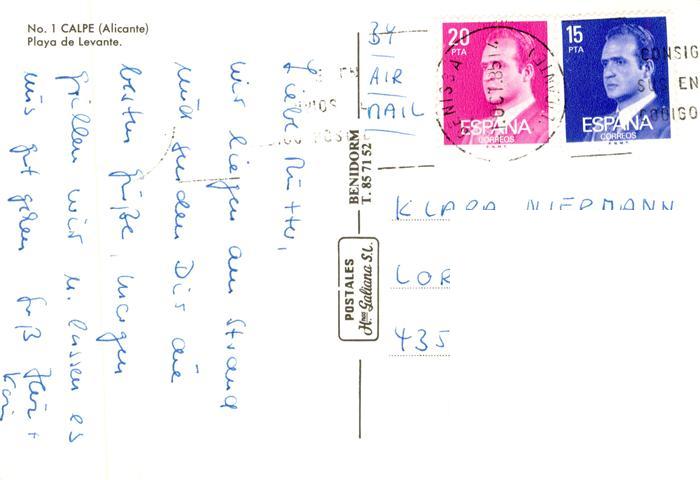 No. 1 CALPE (Alicante)
Playa de Levante.
Liebe Mutter,
wir liegen am Strand
und senden Dir die
besten Grüße. Morgen
grillen wir u. lassen es
uns gut gehen. Gruß
BY
AIR
MAIL
20
PTA
ESPAÑA
CORREOS
F.N.M.T.
15
PTA
ESPAÑA
CORREOS
F.N.M.T.
CONSIG
SUS EN
ODIGO
BENIDORM
T. 85 71 52
POSTALES
Hnos Galiana S.L.
KLARA NIERMANN
LOR
435